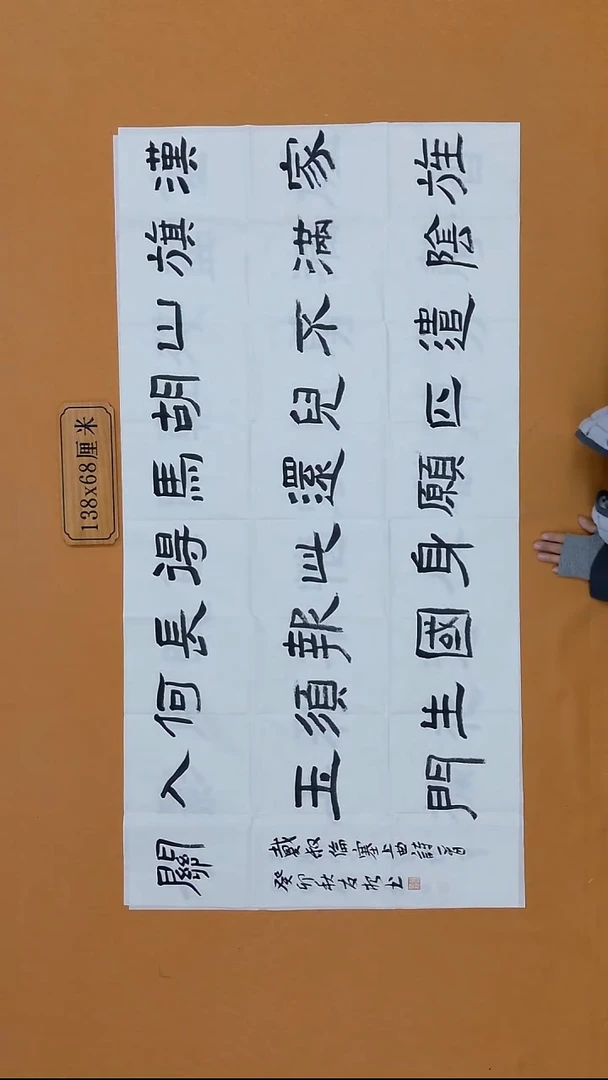 漢家旌
旗滿陰
山不遣
胡兒匹
馬還願
得此身
長報國
何須生
入玉門
關
戴叔倫塞上曲詩二首
癸卯秋友松书
138x68厘米